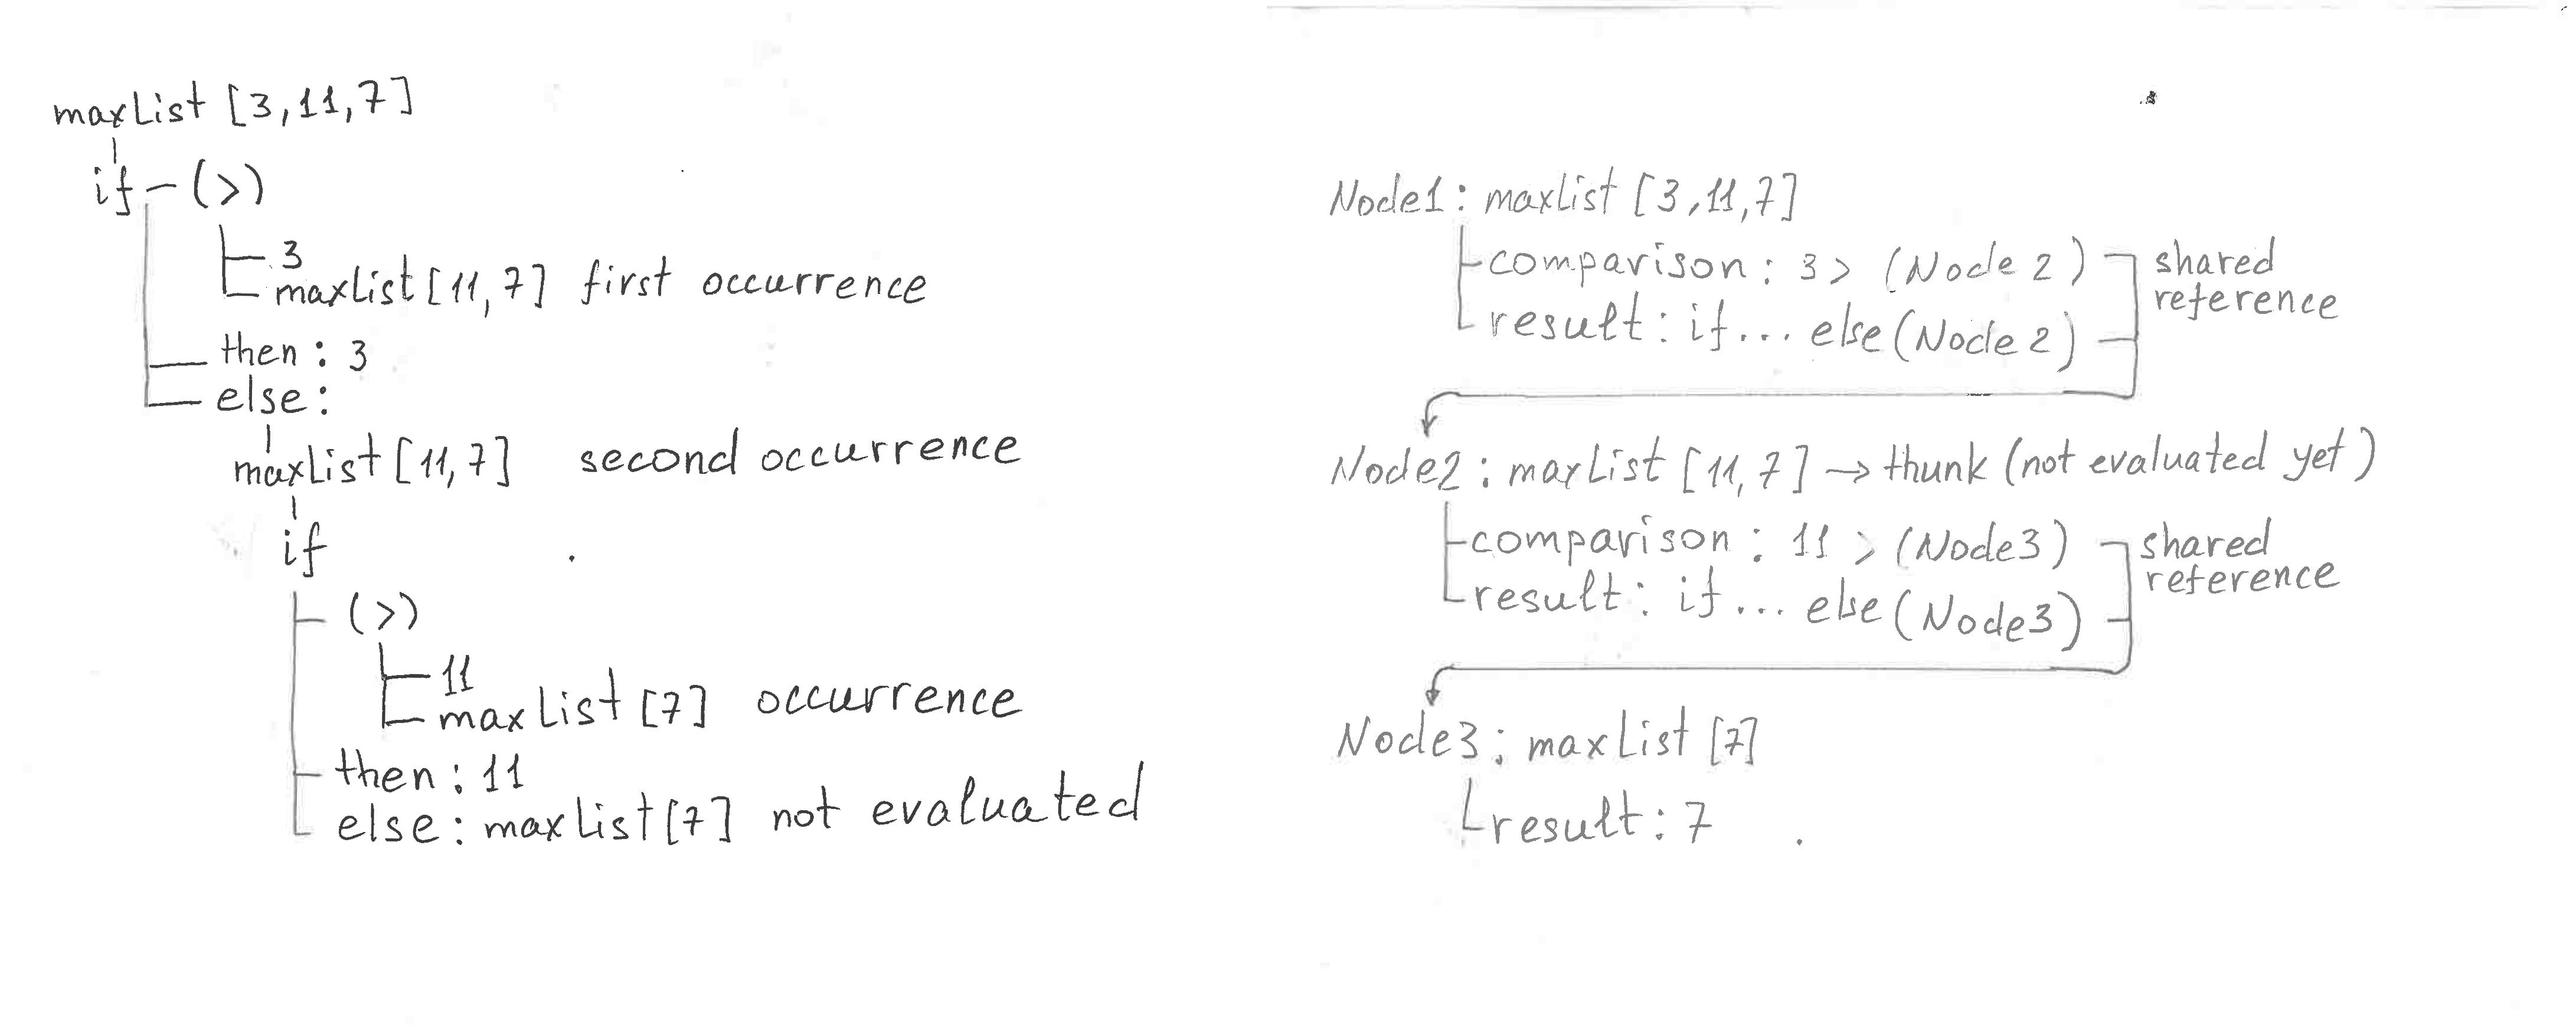 maxList [3,11,7]
if - (>)
3
maxList [11,7] first occurrence
then : 3
else :
maxList [11,7] second occurrence
if
(>)
11
maxList [7] occurrence
then : 11
else : maxList [7] not evaluated
Node1 : maxList [3,11,7]
comparison : 3 > (Node 2)
result : if ... else (Node 2)
shared
reference
Node2 : maxList [11,7] → thunk (not evaluated yet)
comparison : 11 > (Node3)
result : if ... else (Node3)
shared
reference
Node3 : maxList [7]
result : 7